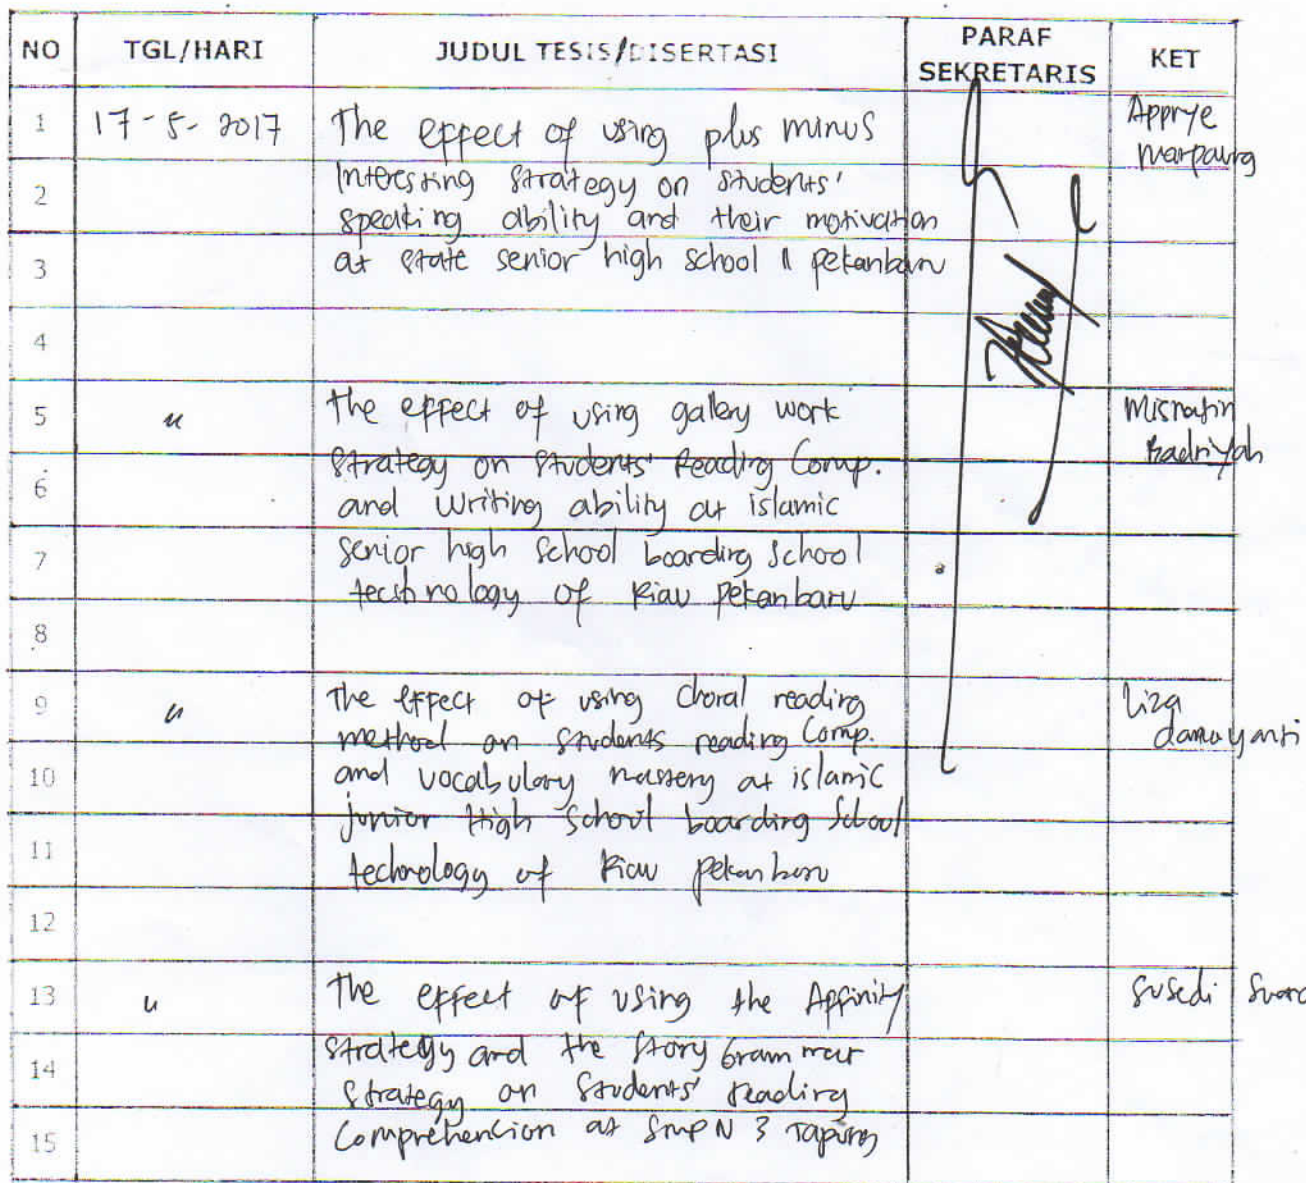 NO TGL/HARI JUDUL TESIS/DISERTASI PARAF SEKRETARIS KET
1 17-5-2017 The effect of using plus minus Apprye
Marpaung
2 Interesting strategy on students'
speaking ability and their motivation
3 at state senior high school 11 pekanbaru
4
5 " The effect of using gallery work Misnatin
strategy on students' Reading Comp. Badriyah
6
and writing ability at islamic
7 senior high school boarding school
technology of Riau pekanbaru
8
9 " The effect of using Choral reading Liza
method on students reading Comp. damayanti
10 and vocabulary mastery at islamic
junior High School boarding School
11
technology of Riau pekanbaru
12
13 " The effect of using the Affinity Susedi
strategy and the story Grammar
14
strategy on students' reading
15 Comprehension at SmpN 3 Tapung